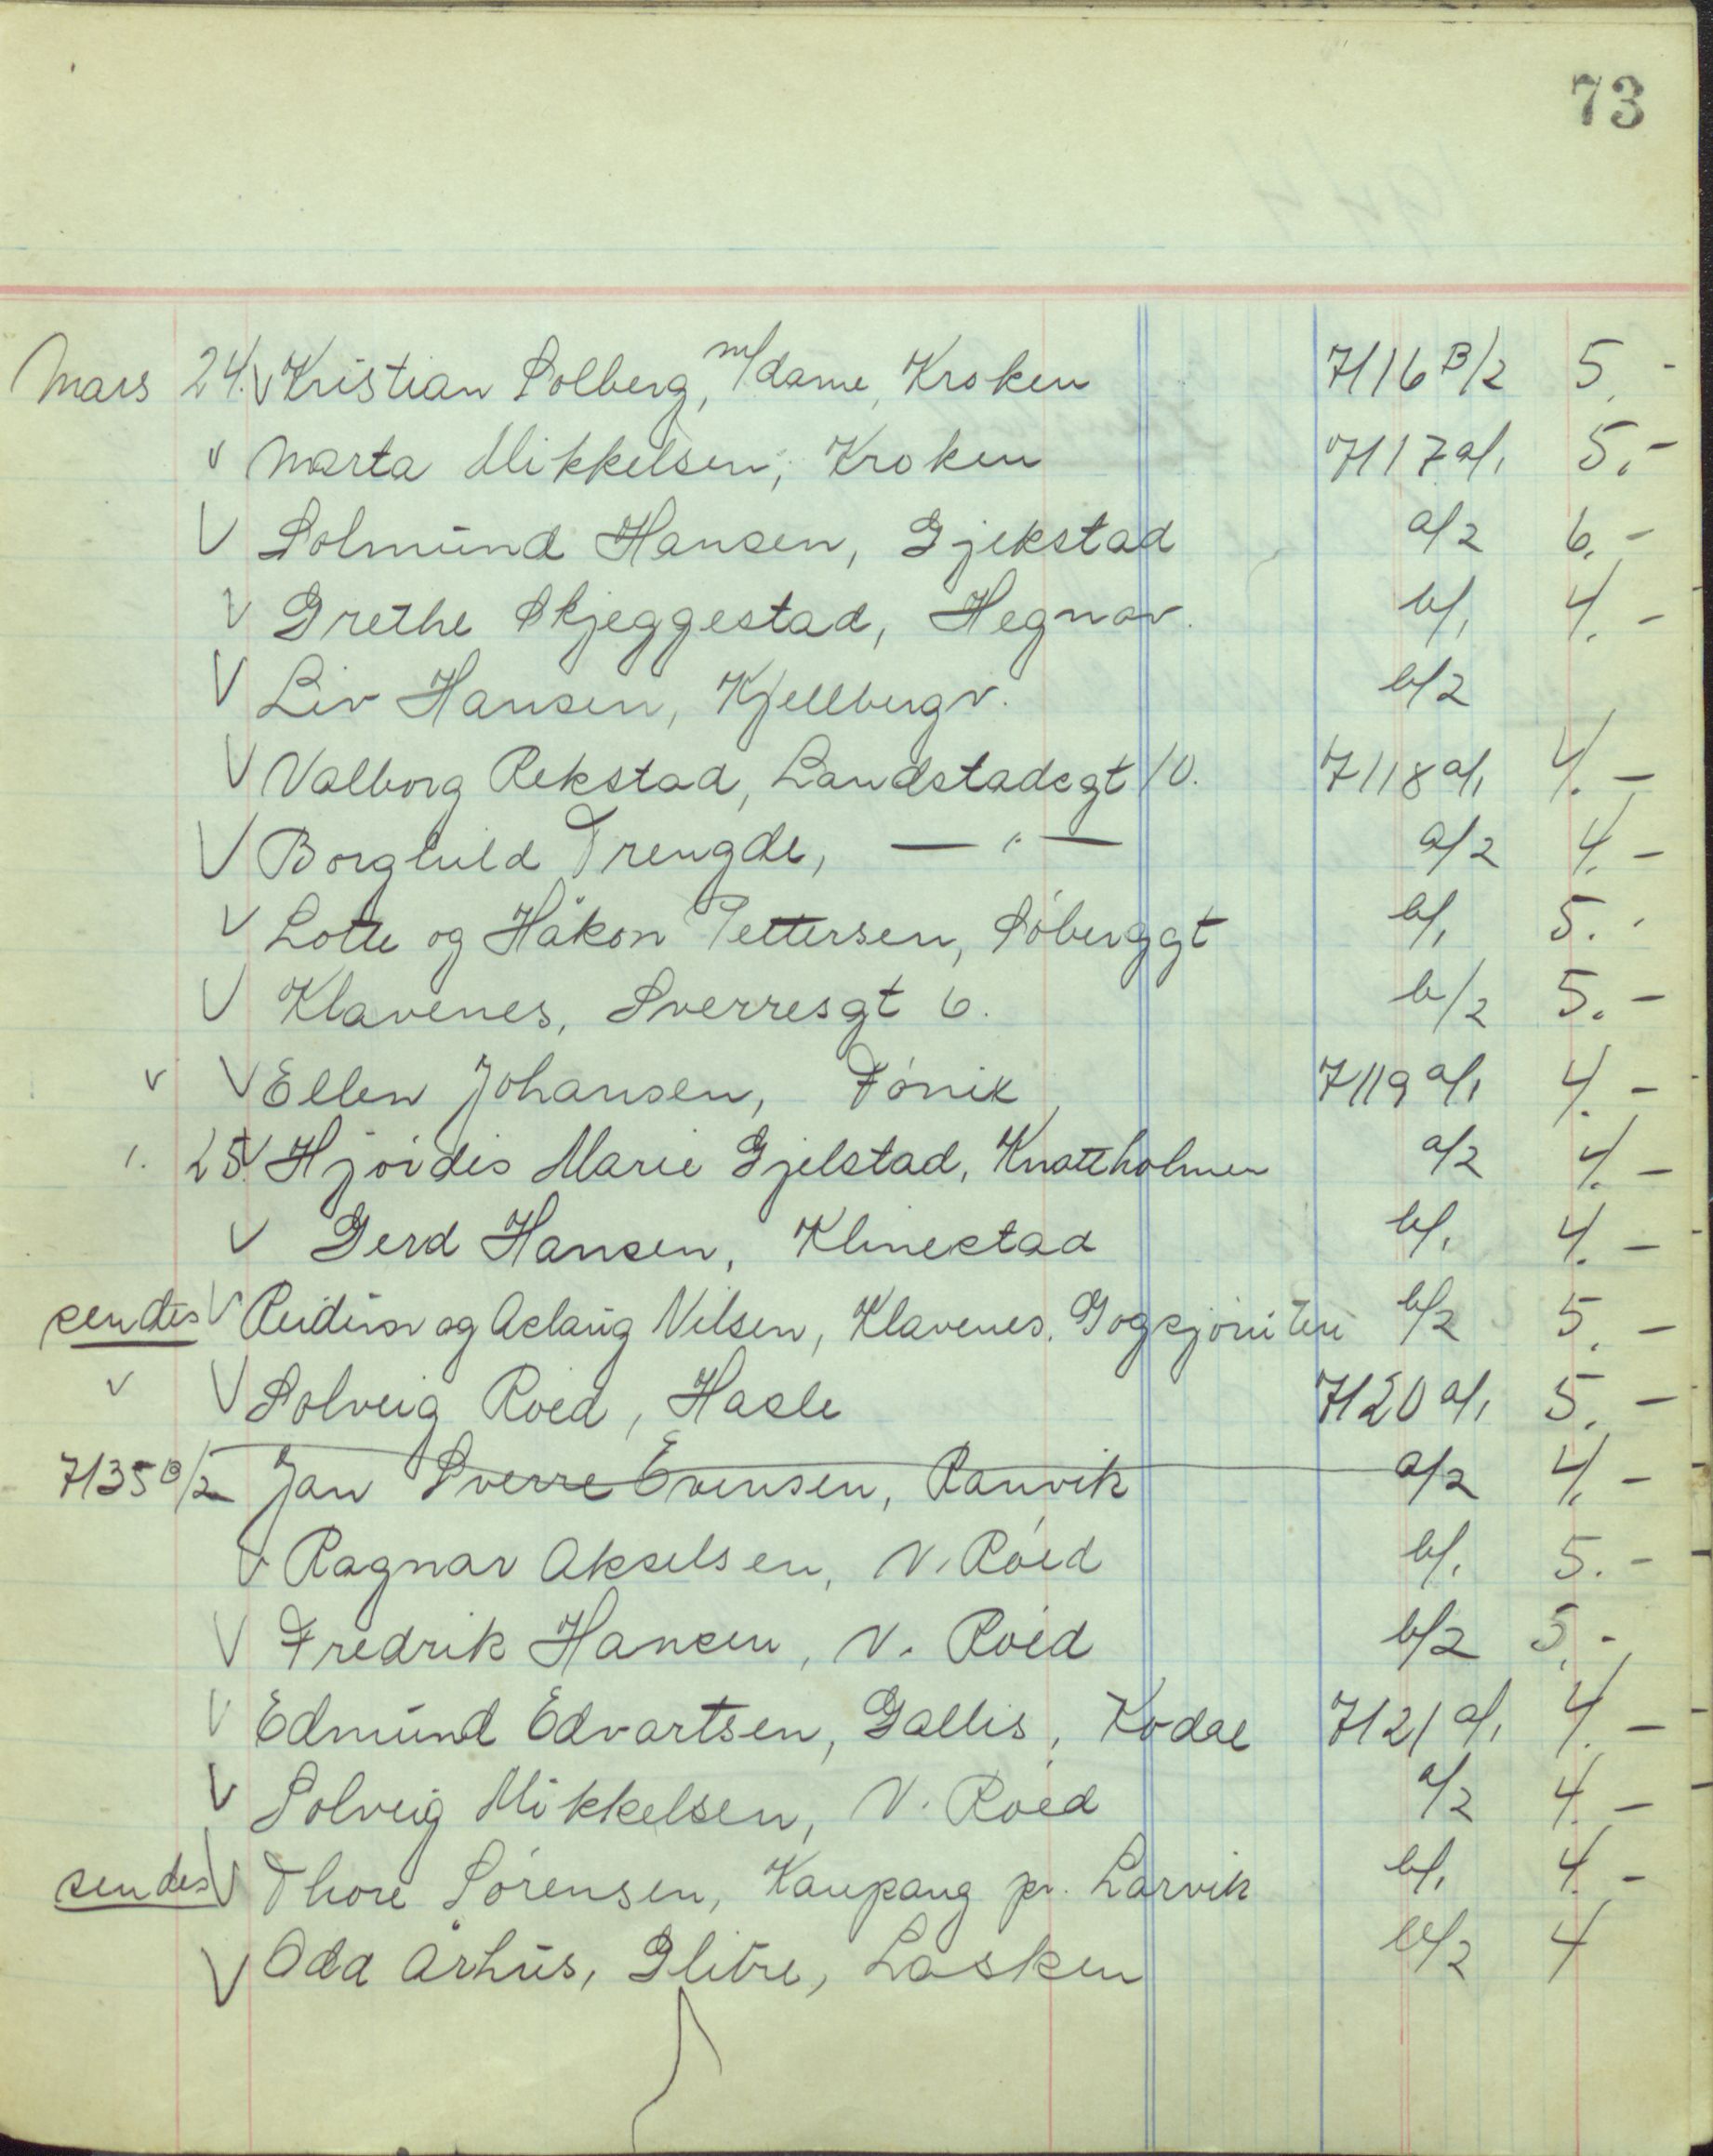 73
Mars 24. V Kristian Solberg, m/dame, Kroken 7116 B/2 5.-
V Marta Mikkelsen, Kroken 7117 a/1 5.-
V Solmund Hansen, Gjekstad a/2 6.-
V Grethe Skjeggestad, Hegnav. b/1 4.-
V Liv Hansen, Kjellbergv. b/2
V Valborg Rekstad, Landstadsgt 10. 7118 a/1 4.-
V Borghild Trengde, — " — a/2 4.-
V Lotte og Håkon Pettersen, Söberggt b/1 5.-
V Klavenes, Sverresgt 6. b/2 5.-
v V Ellen Johansen, Fönik 7119 a/1 4.-
1. 25. V Hjördis Marie Gjelstad, Knattholmen a/2 4.-
V Gerd Hansen, Klinestad b/1 4.-
sendes V Reidun og Aslaug Nilsen, Klavenes, b/2 5.-
v V Solveig Röed, Hasle 7120 a/1 5.-
7135 B/2 Jan Sverre Evensen, Ranvik a/2 4.-
V Ragnar Akselsen, N. Röed b/1 5.-
V Fredrik Hansen, N. Röed b/2 5.-
V Edmund Edvartsen, Gallis, Kodal 7121 a/1 4.-
V Solveig Mikkelsen, N. Röed a/2 4.-
sendes V Thore Sörensen, Kaupang pr. Larvik b/1 4.-
V Oda Århus, Glitre, Lasken b/2 4